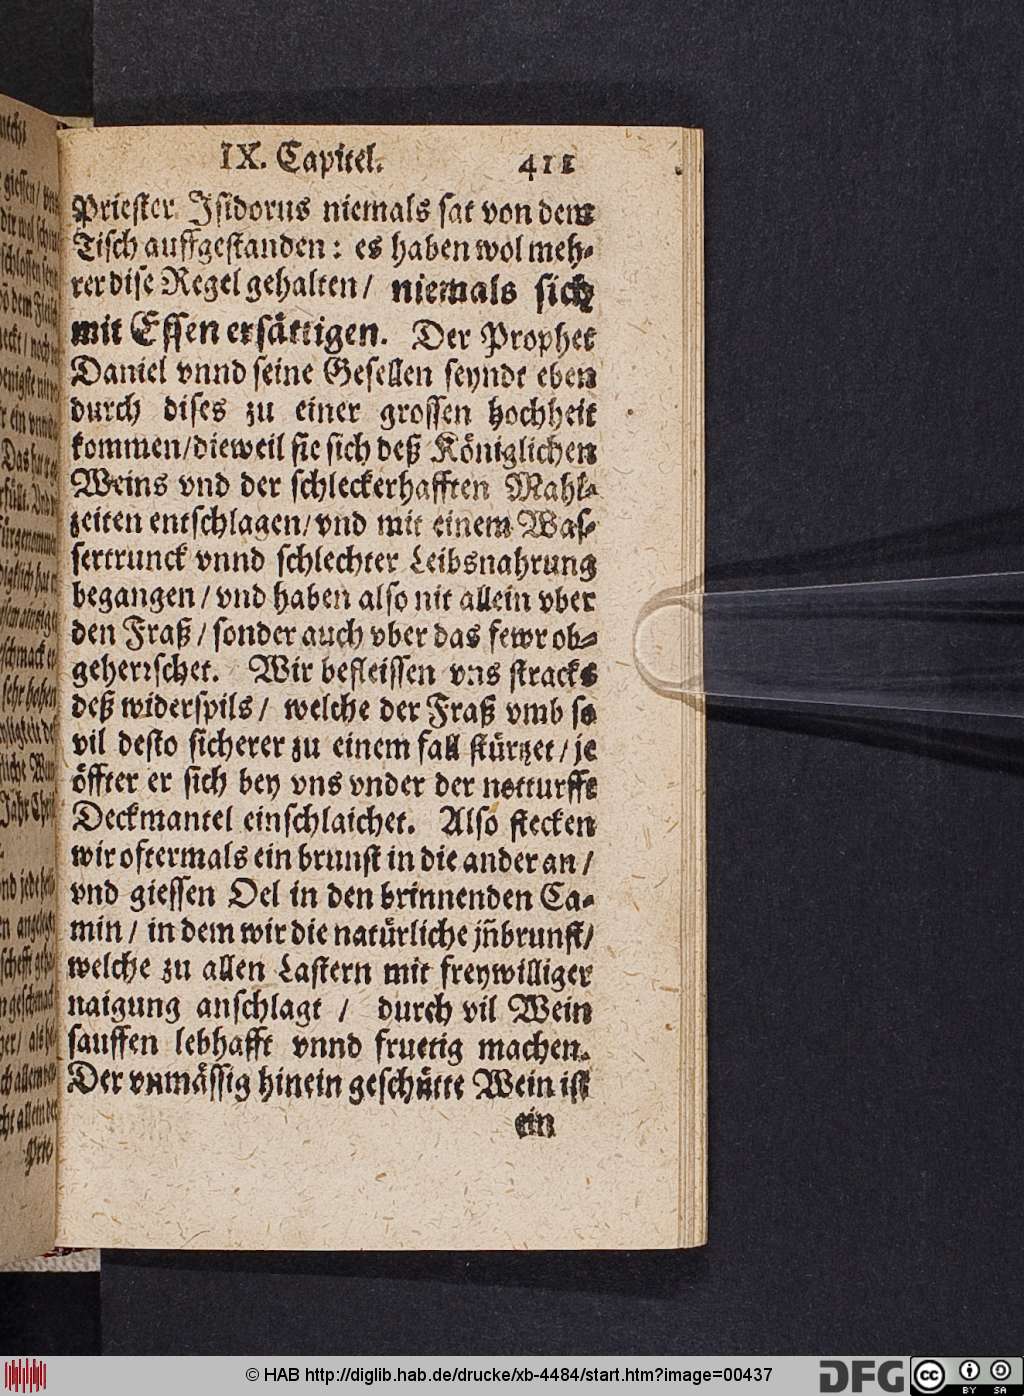 IX. Capitel. 411
Priester Isidorus niemals sat von dem
Tisch auffgestanden: es haben wol meh-
rer dise Regel gehalten/ niemals sich
mit Essen ersättigen. Der Prophet
Daniel vnnd seine Gesellen seyndt eben
durch dises zu einer grossen hochheit
kommen/dieweil sie sich deß Königlichen
Weins vnd der schleckerhafften Mahl-
zeiten entschlagen/vnd mit einem Was-
sertrunck vnnd schlechter Leibsnahrung
begangen/vnd haben also nit allein vber
den Fraß/sonder auch vber das fewr ob-
geherrschet. Wir befleissen vns stracks
deß widerspils/ welche der Fraß vmb so
vil desto sicherer zu einem fall stürtzet/je
öffter er sich bey vns vnder der notturfft
Deckmantel einschlaichet. Also stecken
wir oftermals ein brunst in die ander an/
vnd giessen Oel in den brinnenden Ca-
min/ in dem wir die natürliche jñbrunst/
welche zu allen Lastern mit freywilliger
naigung anschlagt/ durch vil Wein
sauffen lebhafft vnnd fruetig machen.
Der vnmässig hinein geschütte Wein ist
ein
© HAB http://diglib.hab.de/drucke/xb-4484/start.htm?image=00437
DFG
cc
BY SA